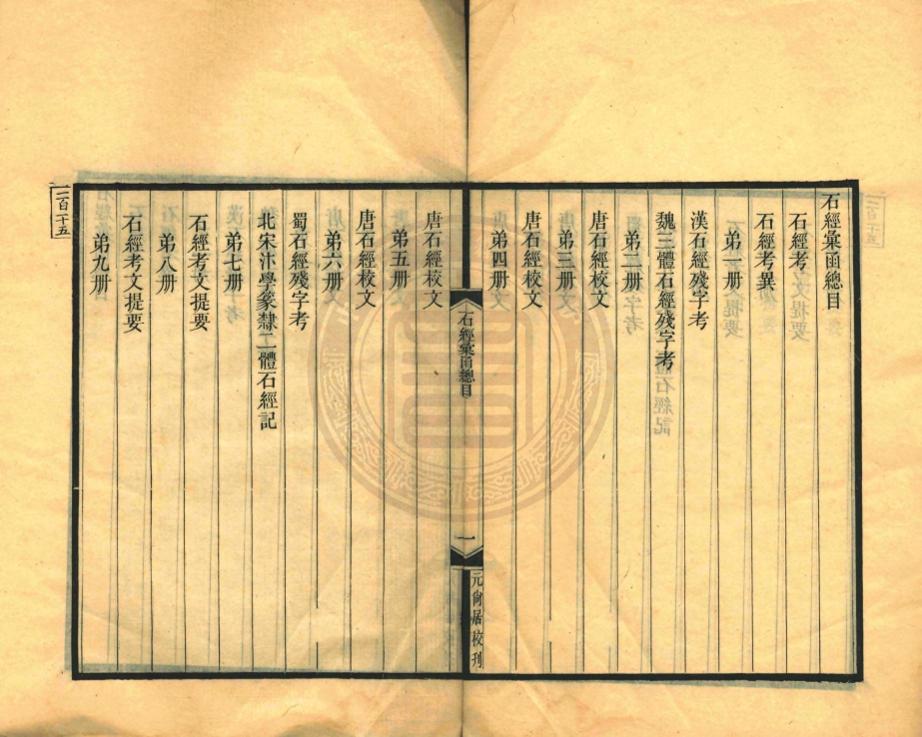 石經彙函總目
石經考
石經考異
弟一册
漢石經殘字考
魏三體石經殘字考
弟二册
唐石經校文
弟三册
唐石經校文
弟四册
石經彙函總目
一
元尙居校刊
唐石經校文
弟五册
唐石經校文
弟六册
蜀石經殘字考
北宋汴學篆隸二體石經記
弟七册
石經考文提要
弟八册
石經考文提要
弟九册
二百二十五